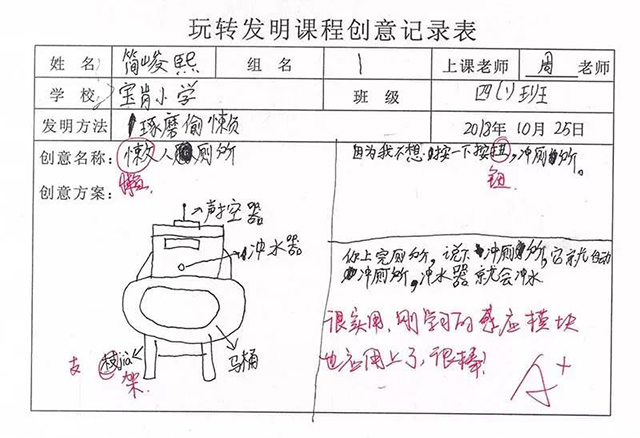 玩转发明课程创意记录表
姓名 简峻熙 组名 1 上课老师 周 老师
学校 宝肖小学 班级 四(1)班
发明方法 琢磨偷懒 2018年10月25日
创意名称: 懒人厕所
懒
创意方案:
声控器
冲水器
马桶
支
枝jià
架
因为我不想按一下按扭,冲厕所。
钮
你上完厕所,说冲厕所,它就自动
冲厕所,冲水器就会冲水
很实用,刚学习的感应模块
也应用上了,很棒!
A+